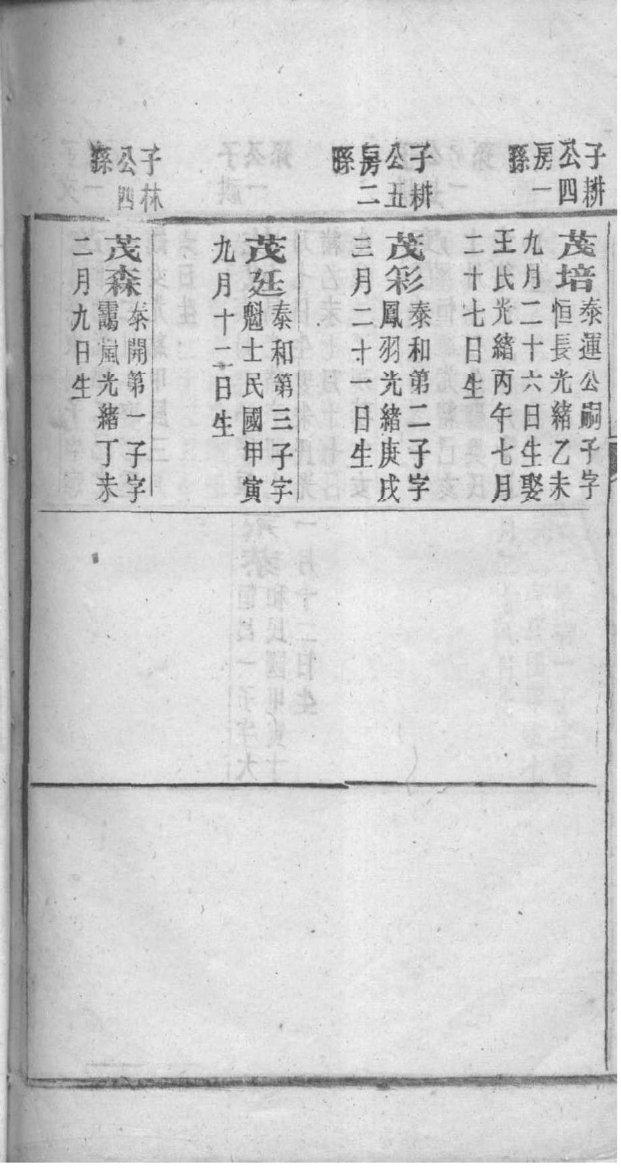 子耕
公四
房一
孫
茂培泰運公嗣子字
恒長光緒乙未
九月二十六日生娶
王氏光緒丙午七月
二十七日生
子耕
公五
房二
孫
茂彩泰和第二子字
鳳羽光緒庚戌
三月二十一日生
茂廷泰和第三子字
魁士民國甲寅
九月十二日生
子林
公四
孫
茂森泰開第一子字
靄嵐光緒丁未
二月九日生